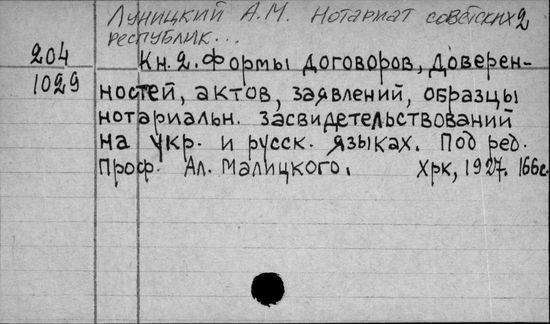 Луницкий А.М. Нотариат советских 2
республик...
204
1029
Кн. 2. Формы договоров, доверен-
ностей, актов, заявлений, образцы
нотариальн. засвидетельствований
на укр. и русск. языках. Под ред.
Проф. Ал. Малицкого. Хрк, 1927. 166с.